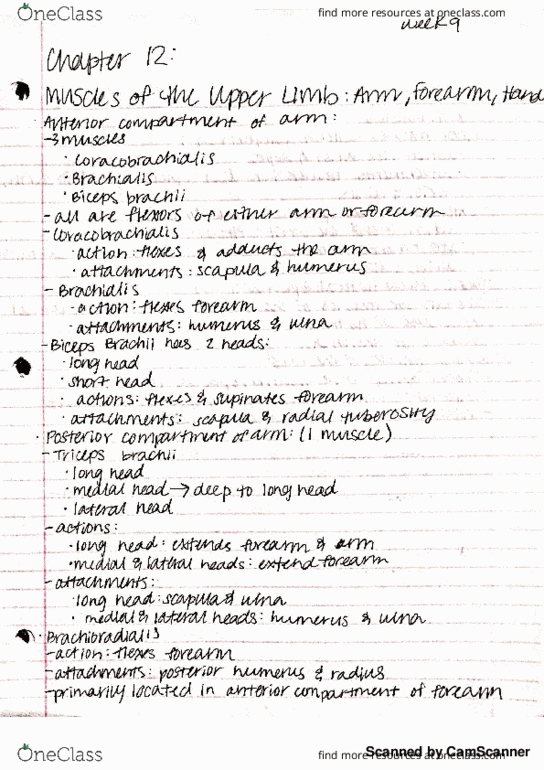 OneClass
find more resources at oneclass.com
week 9
Chapter 12:
Muscles of the Upper Limb: Arm, Forearm, Hand
· Anterior compartment of arm:
-3 muscles
· Coracobrachialis
· Brachialis
· Biceps brachii
- all are flexors of either arm or forearm
- Coracobrachialis
· action: flexes & adducts the arm
· attachments: scapula & humerus
- Brachialis
· action: flexes forearm
· attachments: humerus & ulna
- Biceps Brachii has 2 heads:
· long head
· short head
· actions: flexes & supinates forearm
· attachments: scapula & radial tuberosity
· Posterior compartment of arm: (1 muscle)
- Triceps brachii
· long head
· medial head → deep to long head
· lateral head
- actions:
· long head: extends forearm & arm
· medial & lateral heads: extend forearm
- attachments:
· long head: scapula & ulna
· medial & lateral heads: humerus & ulna
· Brachioradialis
- action: flexes forearm
- attachments: posterior humerus & radius
- primarily located in anterior compartment of forearm
OneClass
find more resources at oneclass.com
Scanned by CamScanner